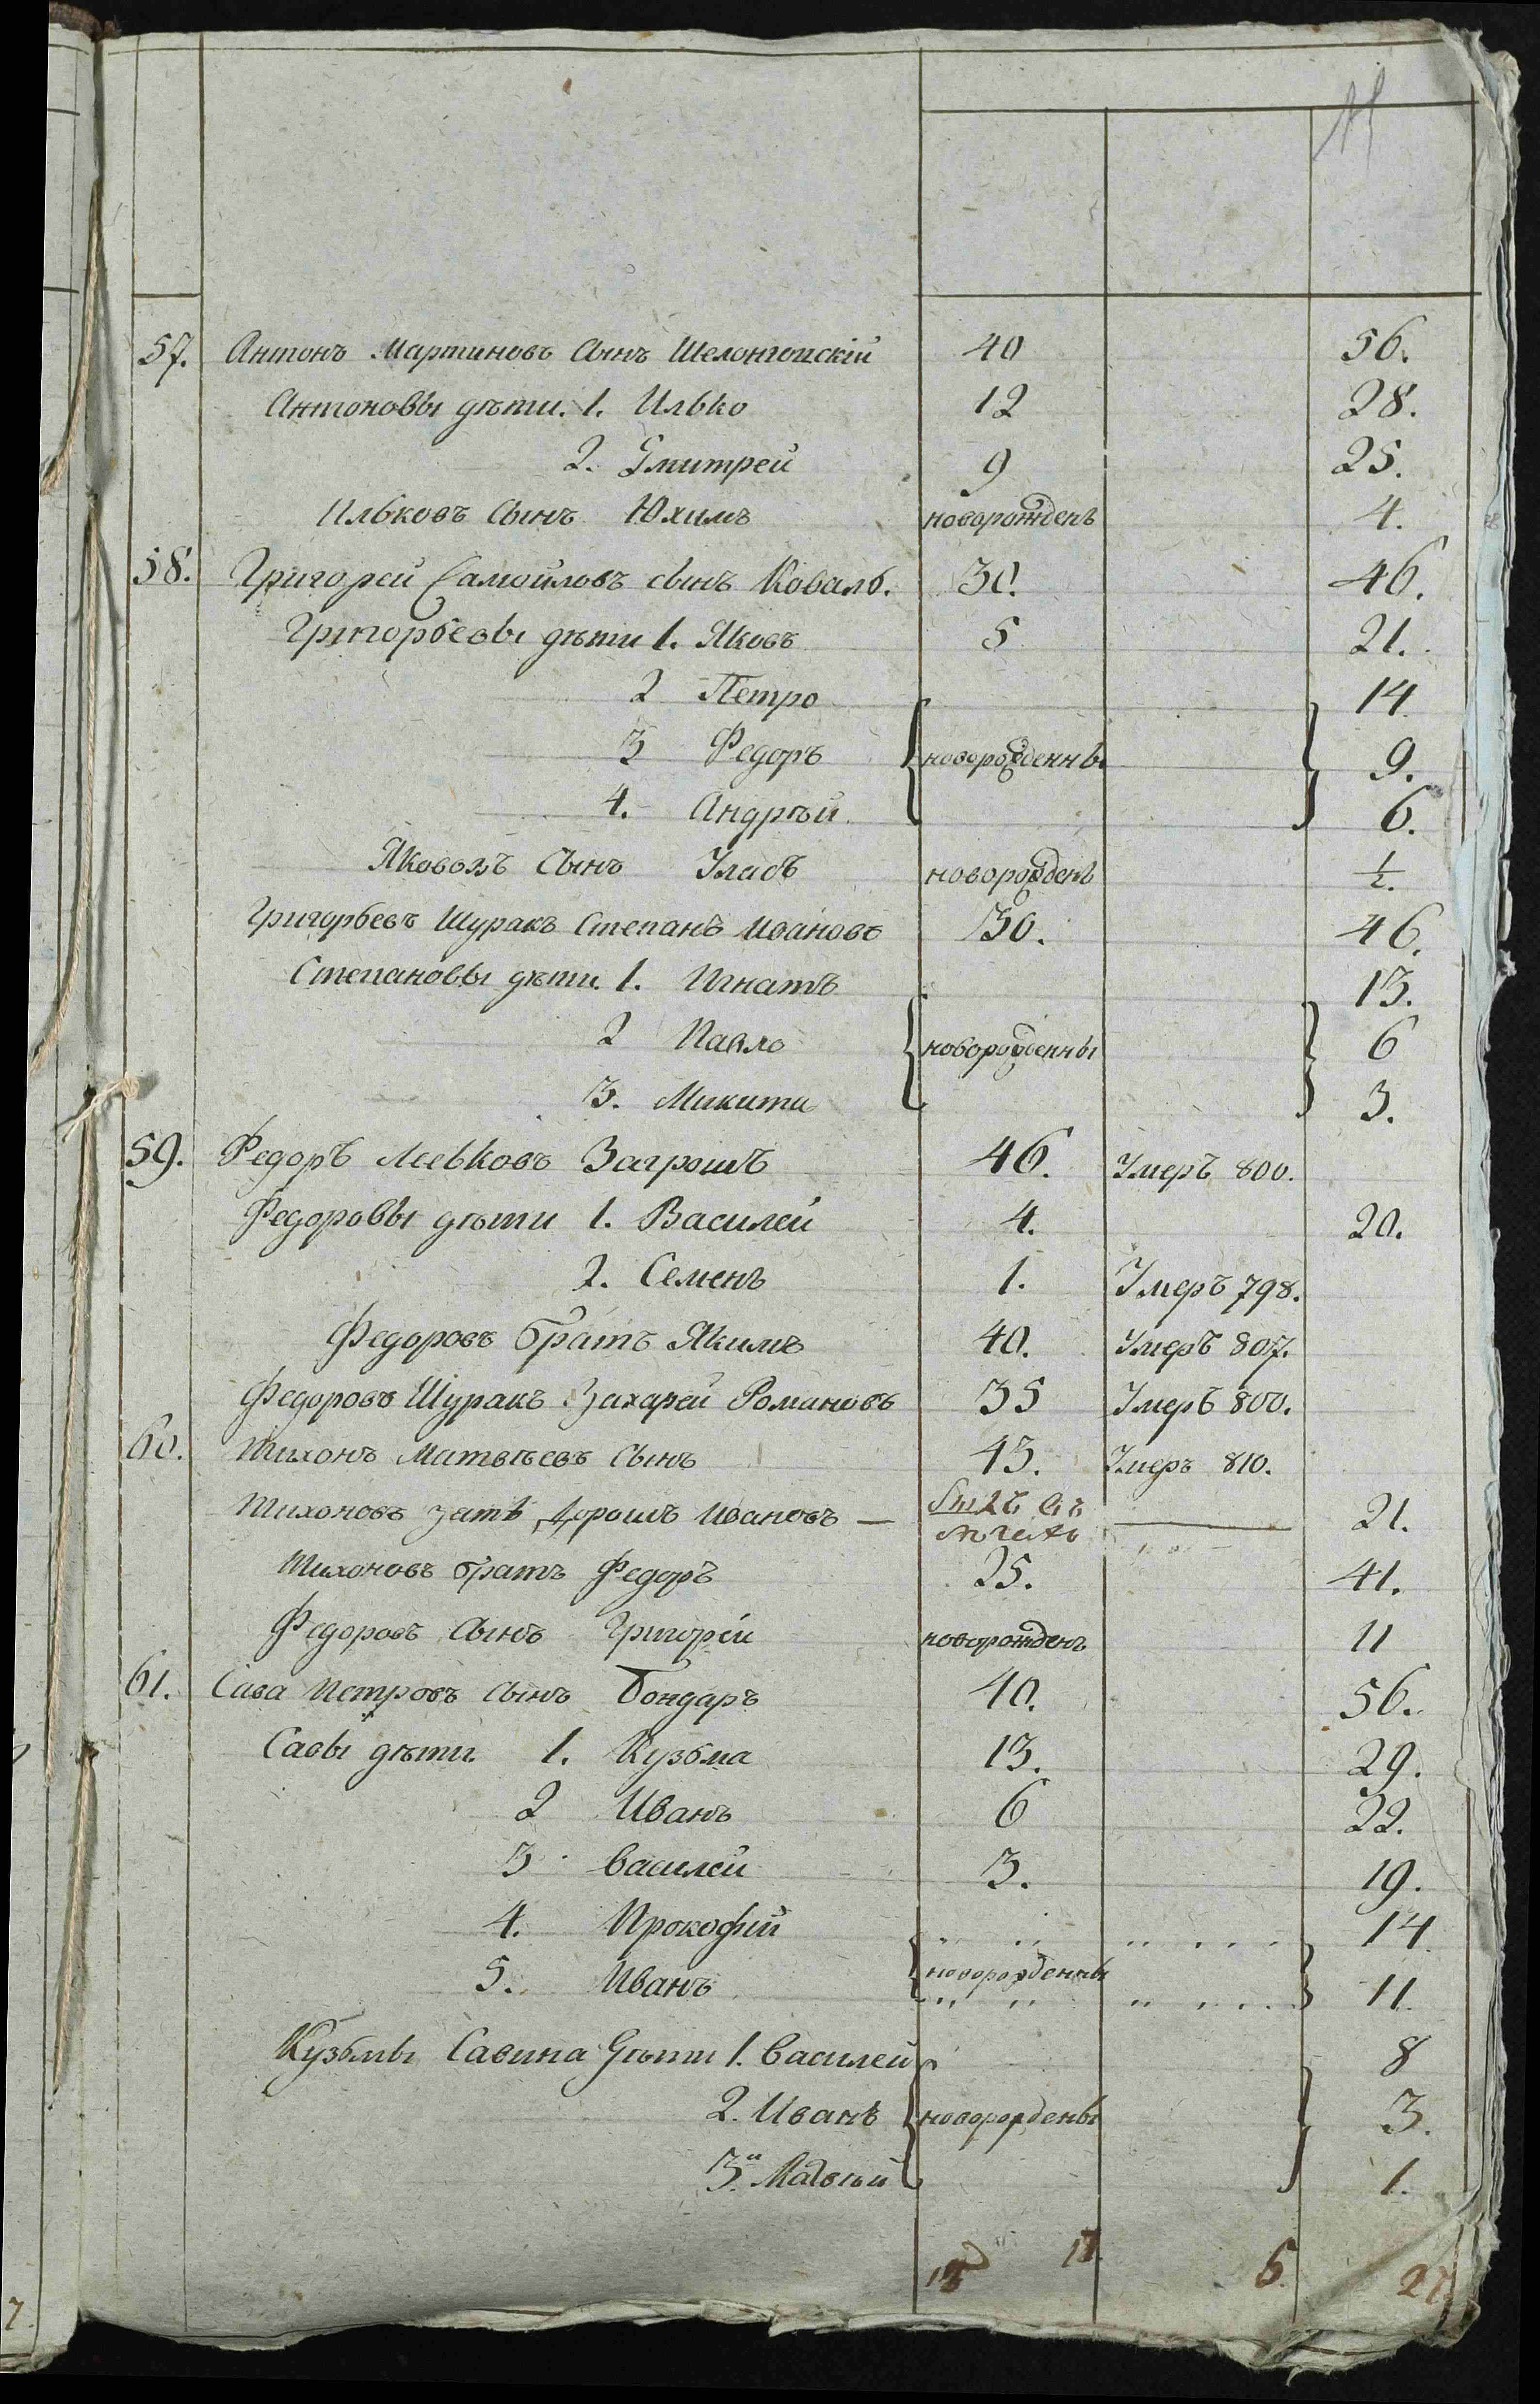 57. Антонъ Мартиновъ Сынъ 40 56.
Антоновы дѣти. 1. Илько 12 28.
2. Дмитрей 9 25.
Ильковъ Сынъ Юхимъ новорожденъ 4.
58. Григорей Самойловъ сынъ Коваль. 30. 46.
Григорьевы дѣти 1. Яковъ 5 21.
2 Петро 14
3 Федоръ новорожденны 9.
4. Андрѣй 6.
Якововъ Сынъ Уласъ новорожденъ 1/2.
Григорьевъ Шуракъ Степанъ Ивановъ 30. 46.
Степановы дѣти. 1. Игнатъ 13.
2 Павло новорожденны 6
3. Микита 3.
59. Федоръ Левковъ 46. Умеръ 800.
Федоровы дѣти 1. Василей 4. 20.
2. Семенъ 1. Умеръ 798.
Федоровъ братъ Якимъ 40. Умеръ 807.
Федоровъ Шуракъ Захарей Романовъ 35 Умеръ 800.
60. Тихонъ Матвѣевъ Сынъ 45. Умеръ 810.
Тихоновъ зять Дорошъ Ивановъ — — 21.
Тихоновъ братъ Федоръ 25. 41.
Федоровъ Сынъ Григорей новорожденъ 11
61. Сава Петровъ сынъ Бондаръ 40. 56.
Савы дѣти. 1. Кузьма 13. 29.
2 Иванъ 6 22.
3 Василей 3. 19.
4. Прокофій 14.
новорожденны
5. Иванъ 11.
Кузьмы Савина Дѣти 1. Василей 8
2. Иванъ новорождены 3.
3.й Матвѣй 1.
6. 27